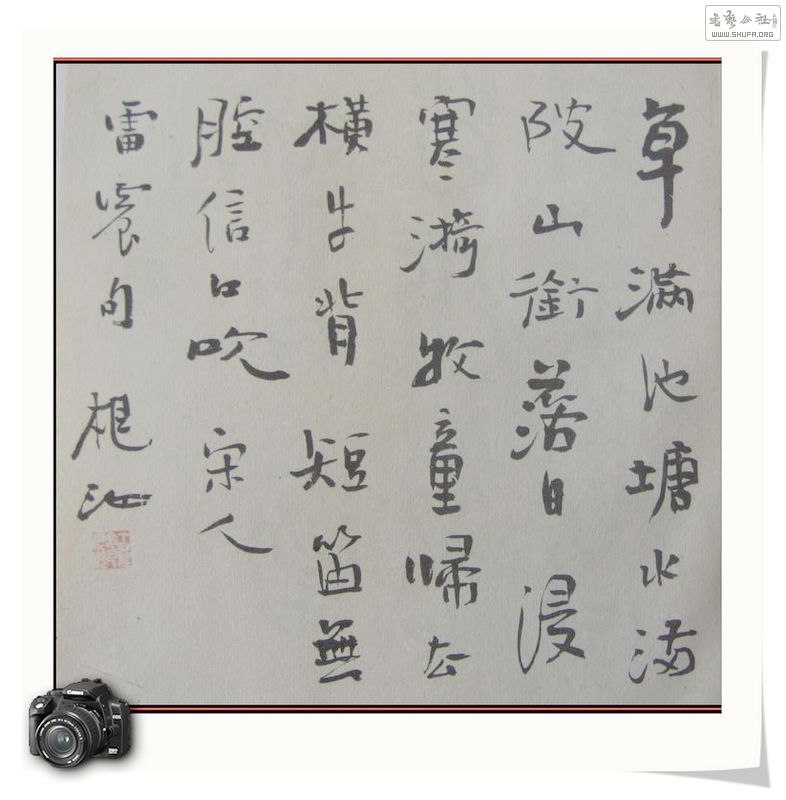 草滿池塘水滿
陂山銜落日浸
寒漪牧童歸去
橫牛背短笛無
腔信口吹宋人
雷震句
書藝公社
WWW.SHUFA.ORG
Canon